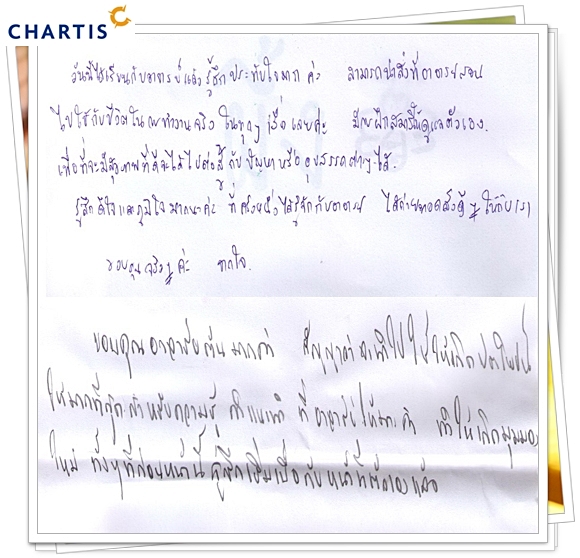 CHARTIS
วันนี้ได้เรียนกับอาจารย์แล้วรู้สึกประทับใจมาก ค่ะ สามารถนำสิ่งที่อาจารย์สอน
ไปใช้กับชีวิตในการทำงานจริง ในทุกๆ เรื่อง เลยค่ะ มีการฝึกสมาธิดูแลตัวเอง
เพื่อที่จะมีสุขภาพที่ดีจะได้ไปต่อสู้กับปัญหาหรืออุปสรรคต่างๆ ได้
รู้สึกดีใจและภูมิใจมากนะค่ะ ที่ครั้งหนึ่งได้รู้จักกับอาจารย์ ได้ถ่ายทอดสิ่งดีๆ ให้กับเรา
ขอบคุณจริงๆ ค่ะ จากใจ.
ขอบคุณอาจารย์ มากค่ะ สัญญาว่าจะนำไปใช้ให้เกิดประโยชน์
ให้มากที่สุดค่ะ สำหรับความรู้ คำแนะนำ ที่อาจารย์ให้มาค่ะ ทำให้เกิดมุมมอง
ใหม่ ทั้งๆที่ก่อนหน้านี้ รู้สึกเริ่มเบื่อกับหน้าที่ตัวเองแล้ว